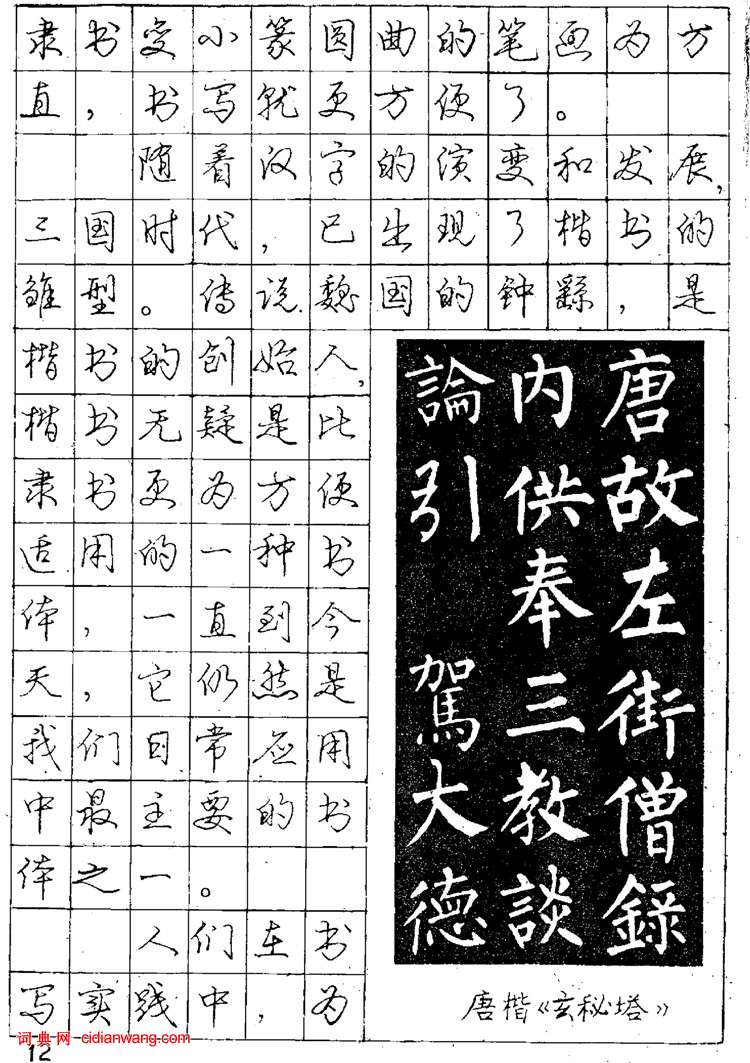 隶书变小篆圆曲的笔画为方
直，书写就更方便了。
随着汉字的演变和发展，
三国时代，已出现了楷书的
雏型。传说魏国的钟繇，是
楷书的创始人，
楷书无疑是比
隶书更为方便
适用的一种书
体，一直到今
天，它仍然是
我们日常应用
中最主要的书
体之一。
人们在书
写实践中，为
唐故左街僧錄
内供奉三教談
論引 駕大德
唐楷《玄秘塔》
词典网 cidianwang.com
12